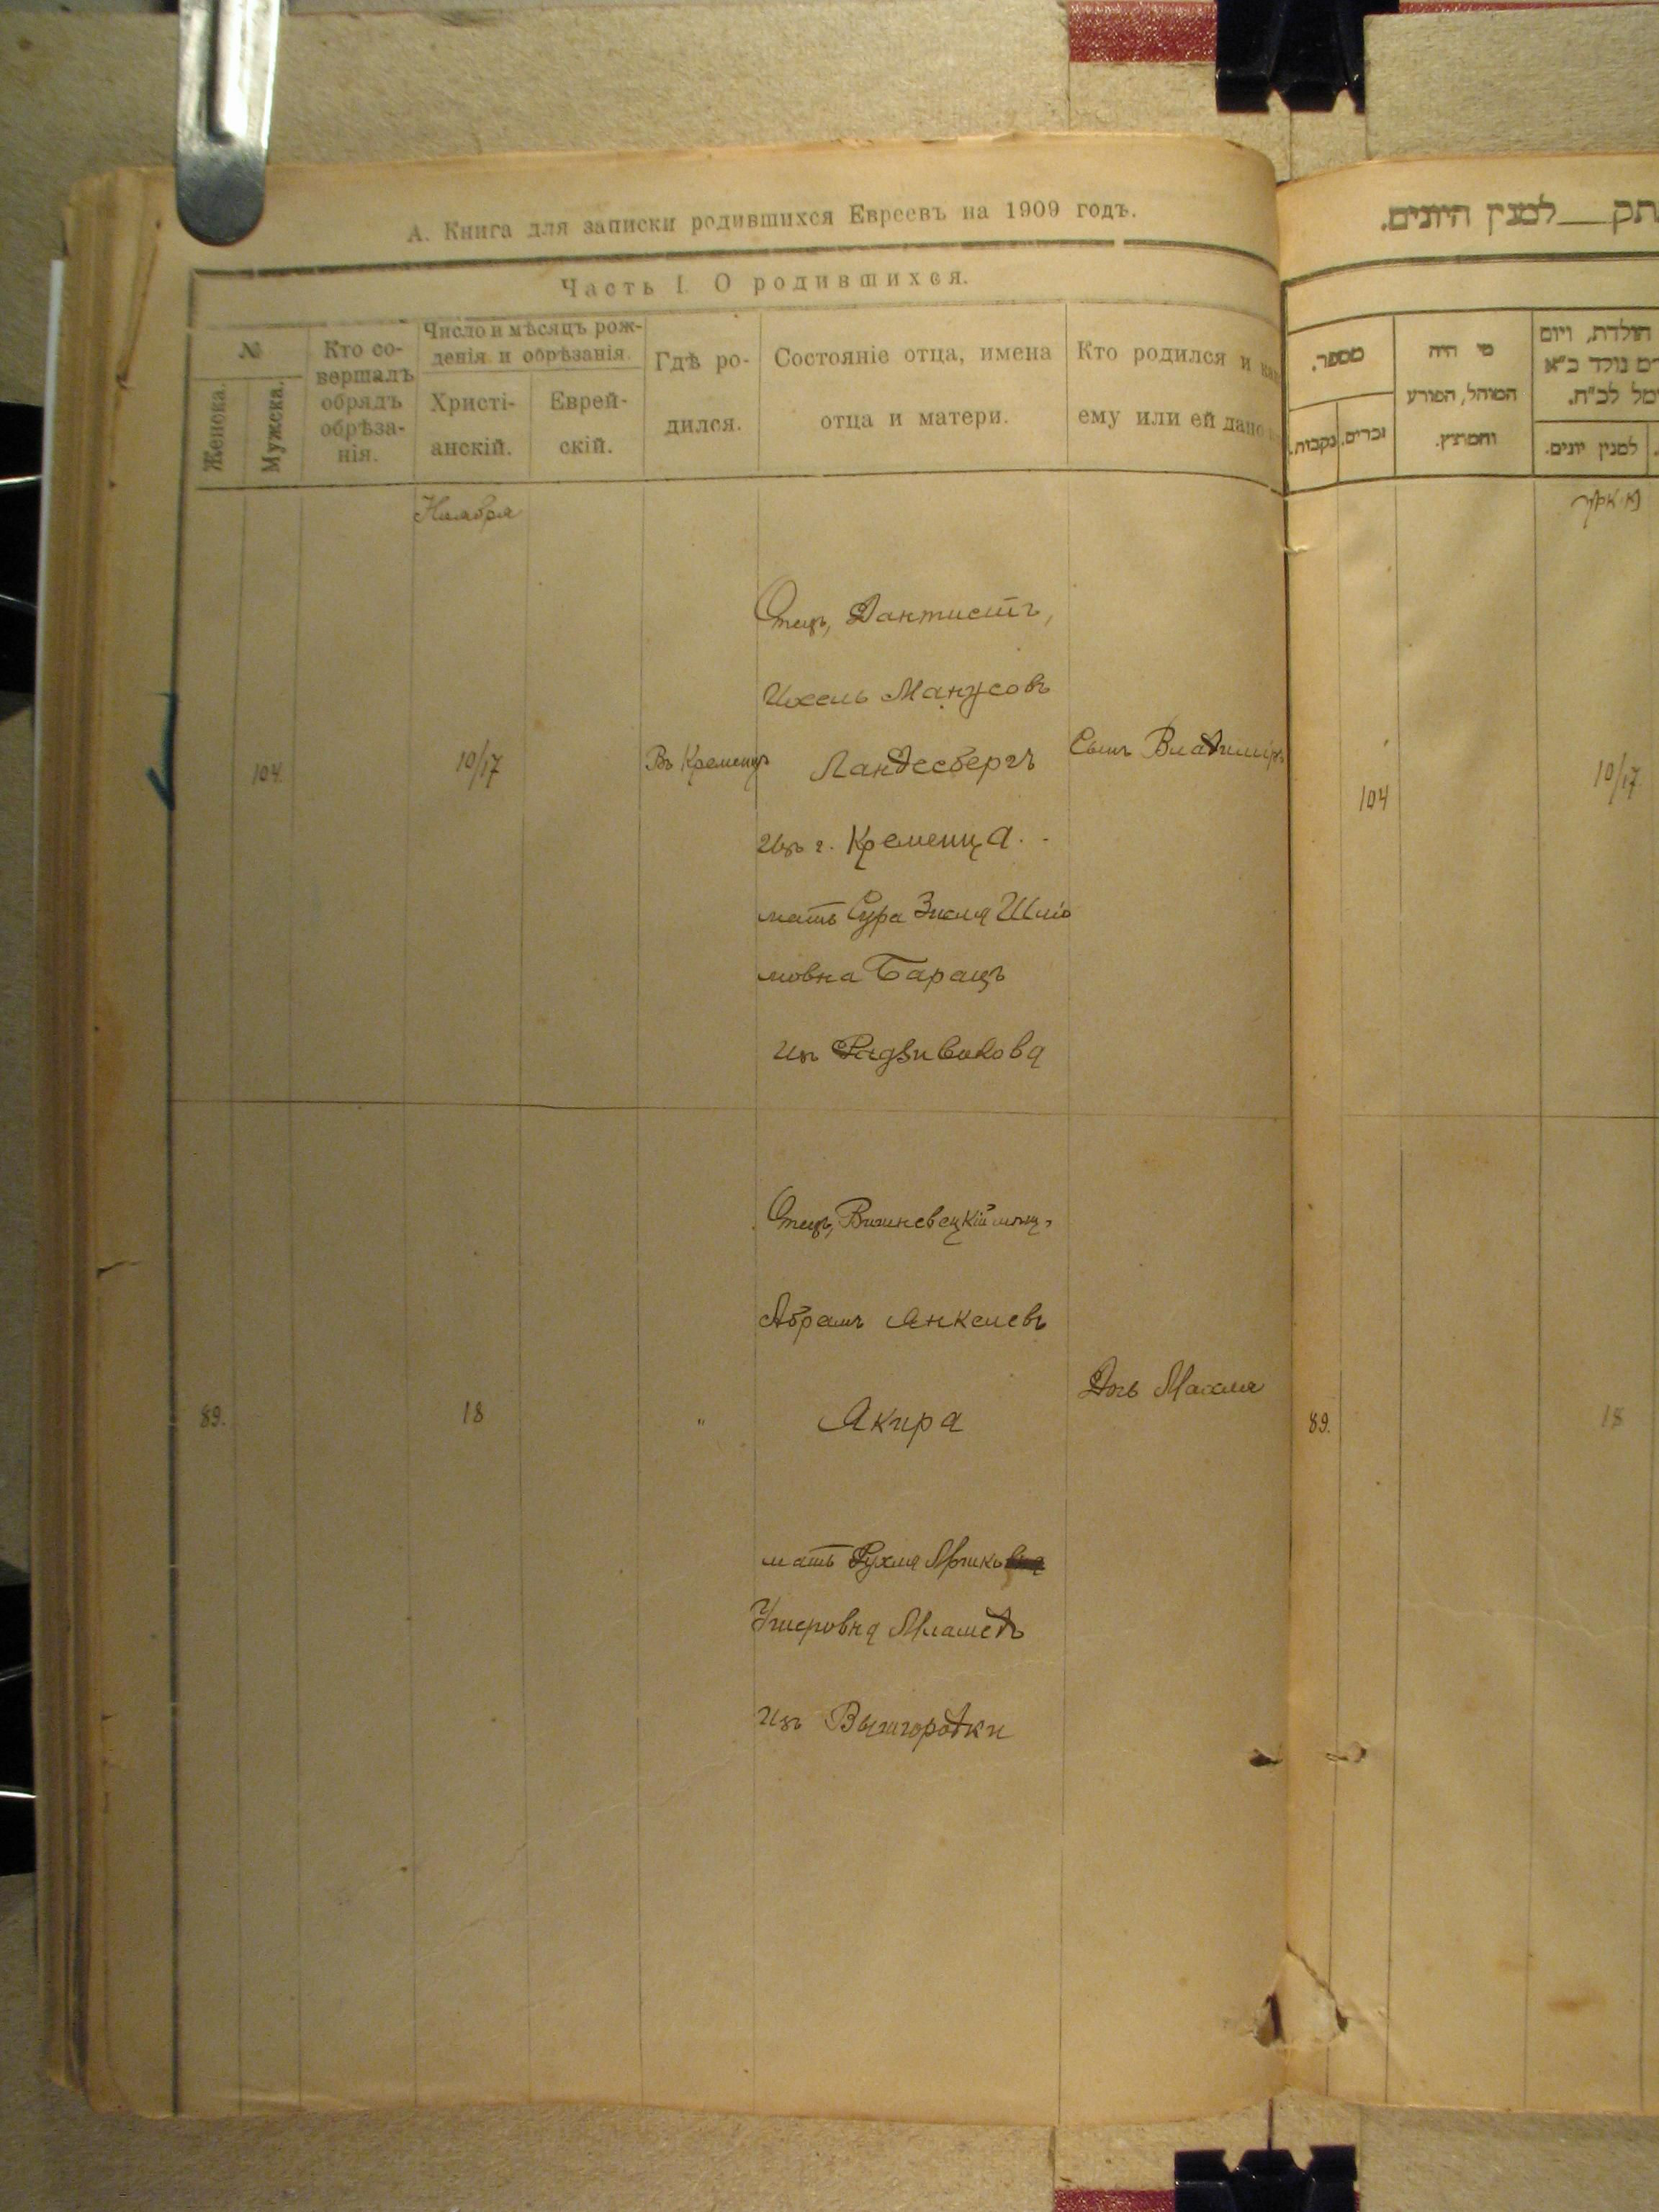 А. Книга для записки родившихся Евреевъ на 1909 годъ.
Часть I. О родившихся.
№
Женска.
Мужска.
Кто со-
вершалъ
обрядъ
обрѣза-
нія.
Число и мѣсяцъ рож-
денія и обрѣзанія.
Христі-
анскій.
Еврей-
скій.
Гдѣ ро-
дился.
Состояніе отца, имена
отца и матери.
Кто родился и
ему или ей дано
Ноября
104
10/17
Въ Кременцѣ
Отецъ, Дантистъ,
Ихель Манусовъ
Ландесбергъ
Изъ г. Кременца.
мать Сура Зисля Шліо
мовна Барацъ
Изъ Радзивилова
Сынъ Владиміръ
89.
18
"
Отецъ, Вишневецкій мѣщ.
Абрамъ Анкелевъ
Акира
мать Рухля
Ушеровна Меламедъ
Изъ Вышгородки
Дочь Масля
תק לפנין היונים.
מספר.
זכרים.
נקבות.
מי היה
המוהל, הפורע
והמוצץ.
הולדת, ויום
נולד כ"א
לכ"ח.
למנין יונים.
104
10/17
89.
18